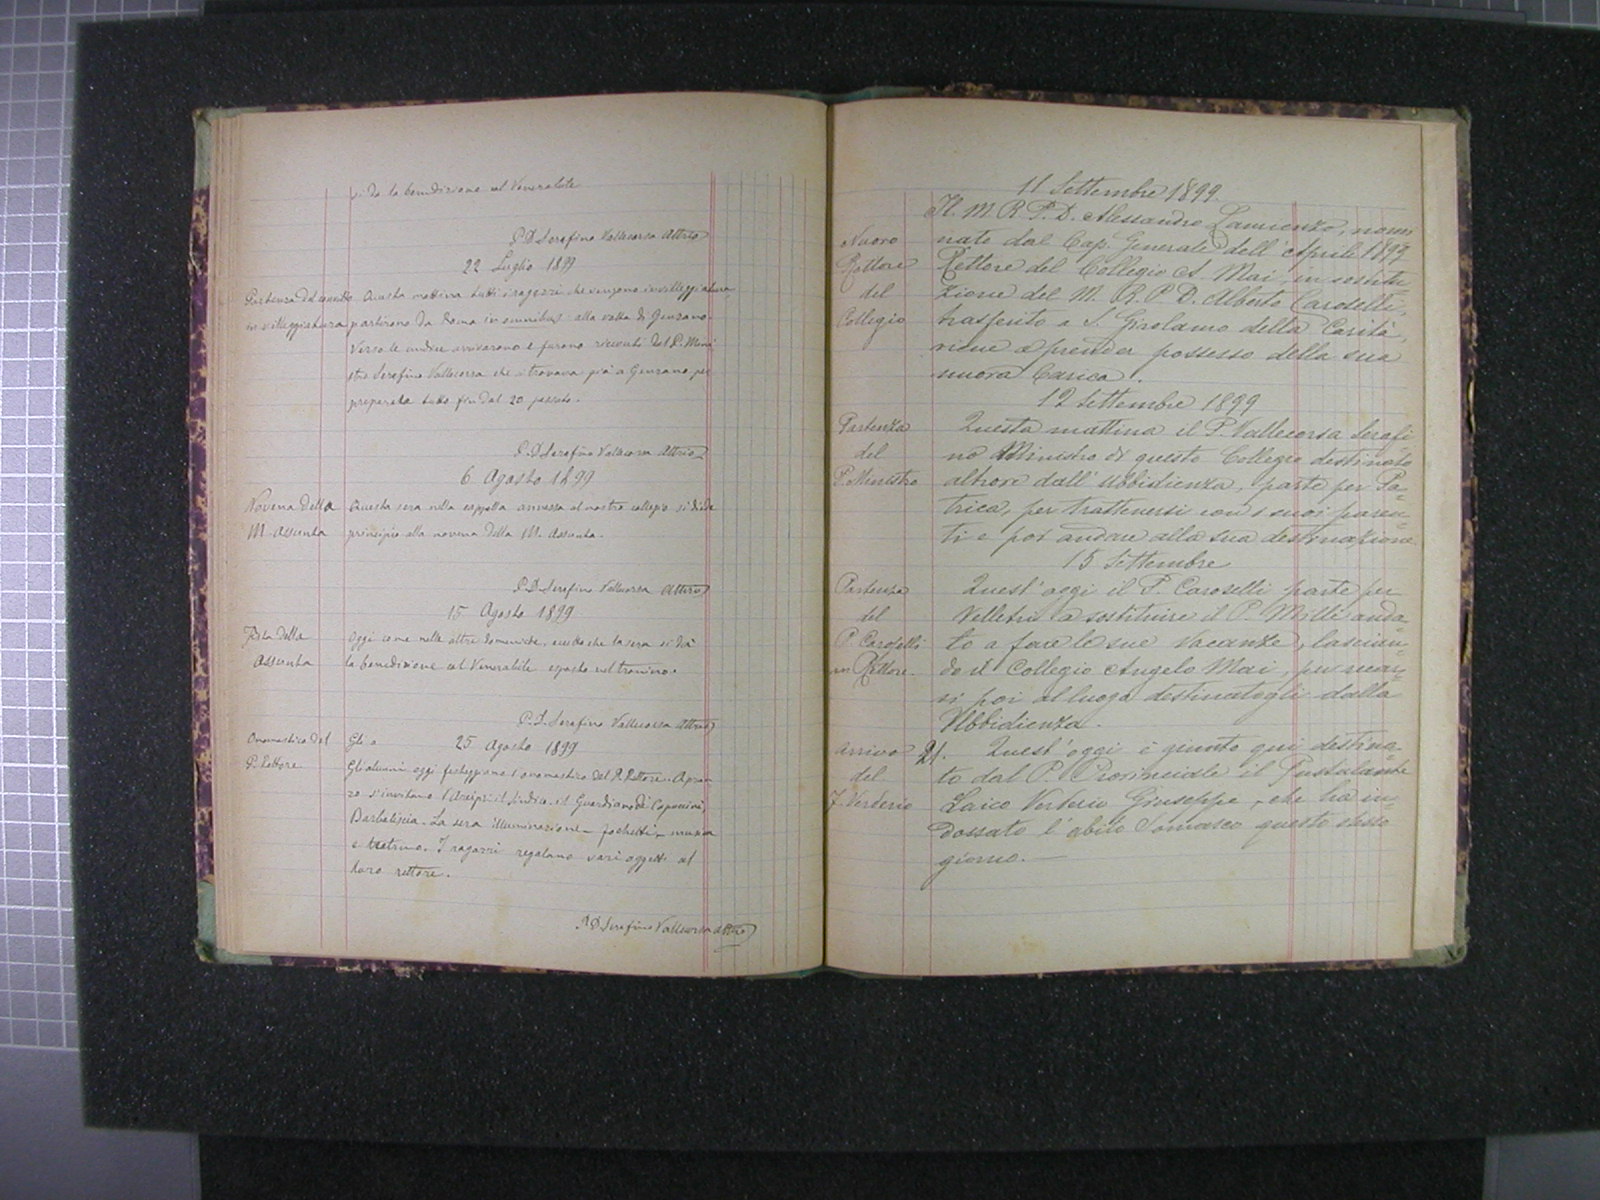 si dà la benedizione col Venerabile
P. D. Serafino Vallecorsa Attrio
22 Luglio 1899
Partenza del convitto
in villeggiatura
Questa mattina tutti i ragazzi che vengono in villeggiatura
partirono da Roma in omnibus alla volta di Genzano.
Verso le undici arrivarono e furono ricevuti dal P. Mini
stro Serafino Vallecorsa che si trovava già a Genzano per
preparare tutto fin dal 20 passato.
P. D. Serafino Vallecorsa Attrio
6 Agosto 1899
Novena della
M. Assunta
Questa sera nella cappella annessa al nostro collegio si diede
principio alla novena della M. Assunta.
P. D. Serafino Vallecorsa Attrio
15 Agosto 1899
Festa della
Assunta
Oggi come nelle altre domeniche, eccetto che la sera si dà
la benedizione col Venerabile esposto nel tronino.
P. D. Serafino Vallecorsa Attrio
Onomastico del
P. Rettore
Gli a
25 Agosto 1899
Gli alunni oggi festeggiano l'onomastico del P. Rettore. A pran
zo s'invitano l'Arcipr. il Sindico, il Guardiano dei Capuccini,
La sera illuminazione - fochetti - musica
e teatrino. I ragazzi regalano vari oggetti al
loro rettore.
P. D. Serafino Vallecorsa Attrio
11 Settembre 1899
Nuovo
Rettore
del
Collegio
Il M. R. P. D. Alessandro nomi
nato dal Cap. Generale dell'Aprile 1899
Rettore del Collegio A. Mai, in sostitu
zione del M. R. P. D. Alberto Caroselli,
trasferito a S. Girolamo della Carità,
viene a prender possesso della sua
nuova Carica.
12 Settembre 1899
Partenza
del
P. Ministro
Questa mattina il P. Vallecorsa Serafi
no Ministro di questo Collegio destinato
altrove dall'Ubbidienza, parte per Pa=
trica, per trattenersi con i suoi paren=
ti e poi andare alla sua destinazione
15 Settembre
Partenza
del
P. Caroselli
in Rettore.
Quest'oggi il P. Caroselli parte per
Velletri a sostituire il P. Milli anda=
to a fare le sue vacanze, lascian=
do il Collegio Angelo Mai, per recar=
si poi al luogo destinatogli dalla
Ubbidienza.
Arrivo
del
F. Verderio
21. Quest'oggi è giunto qui destina=
to dal P. Provinciale il Postulante
Laico Verderio Giuseppe, che ha in=
dossato l'abito Somasco questo stesso
giorno. —